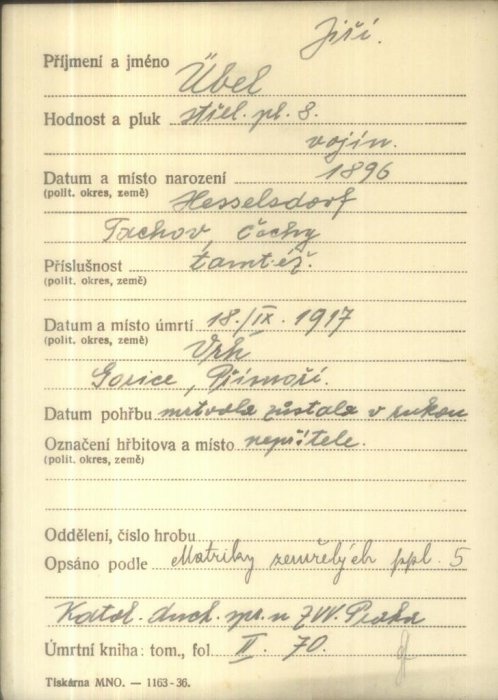 Jiří.
Příjmení a jméno Übel
Hodnost a pluk střel. pl. 8.
vojín.
Datum a místo narození 1896
(polit. okres, země) Hesselsdorf
Tachov, Čechy
Příslušnost tamtéž.
(polit. okres, země)
Datum a místo úmrtí 18./IX. 1917
(polit. okres, země) Vrh
Gorice, Přímoří.
Datum pohřbu mrtvola zůstala v rukou
Označení hřbitova a místo nepřítele.
(polit. okres, země)
Oddělení, číslo hrobu
Opsáno podle Matriky zemřelých ppl. 5
Katol. duch. spr. u ZVV. Praha
Úmrtní kniha: tom., fol. II. 70.
Tiskárna MNO. — 1163-36.